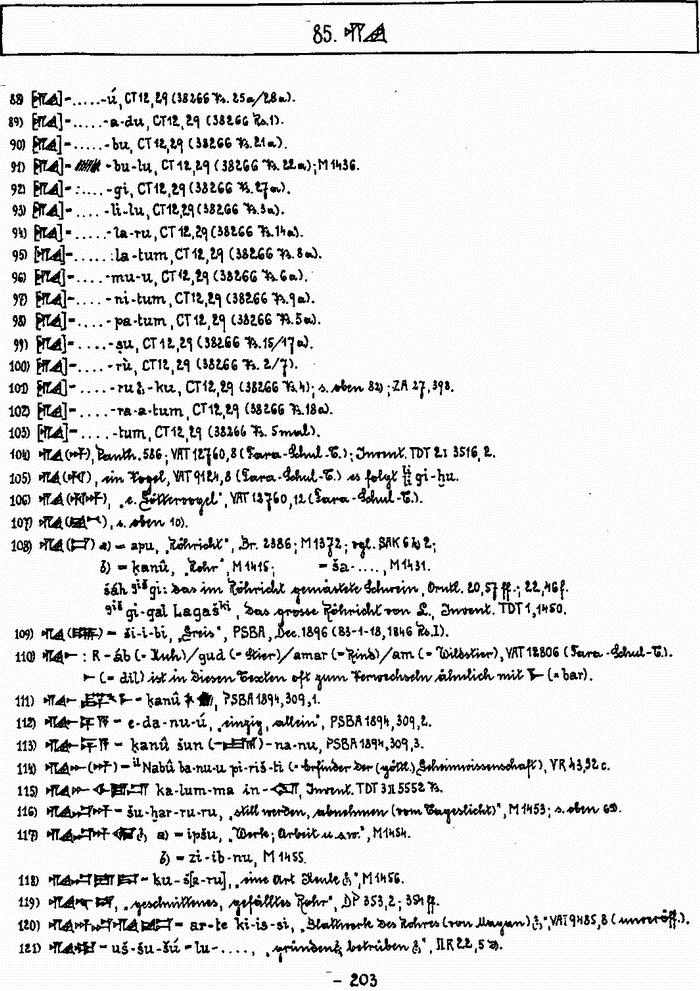 85. 𒄀
88) [𒄀] = .....-ú, CT 12, 29 (38266 Rs. 25a/28a).
89) [𒄀] = .....-a-du, CT 12, 29 (38266 Rs. 1).
90) [𒄀] = .....-bu, CT 12, 29 (38266 Rs. 21a).
91) [𒄀] = -bu-lu, CT 12, 29 (38266 Rs. 22a); M 1436.
92) [𒄀] = :....-gi, CT 12, 29 (38266 Rs. 27a).
93) [𒄀] = ....-li-lu, CT 12, 29 (38266 Rs. 3a).
94) [𒄀] = .....-la-ru, CT 12, 29 (38266 Rs. 14a).
95) [𒄀] = ......:la-tum, CT 12, 29 (38266 Rs. 8a).
96) [𒄀] = ....-mu-u, CT 12, 29 (38266 Rs. 6a).
97) [𒄀] = ....-ni-tum, CT 12, 29 (38266 Rs. 9a).
98) [𒄀] = ....-pa-tum, CT 12, 29 (38266 Rs. 5a).
99) [𒄀] = ....-ṣu, CT 12, 29 (38266 Rs. 15/17a).
100) [𒄀] = ....-rù, CT 12, 29 (38266 Rs. 2/7).
101) [𒄀] = .....-ru?-ku, CT 12, 29 (38266 Rs. 4); s. oben 82); ZA 27, 398.
102) [𒄀] = .....-ra-a-tum, CT 12, 29 (38266 Rs. 18a).
103) [𒄀] = .....-tum, CT 12, 29 (38266 Rs. 5mal).
104) 𒄀(𒀭), Panth. 586; VAT 12760, 8 (Fara-Schul-T.); Invent. TDT 2I 3516, 2.
105) 𒄀( ), ein Vogel, VAT 9124, 8 (Fara-Schul-T.) es folgt gi-ḫu.
106) 𒄀( ), „e. Göttervogel", VAT 12760, 12 (Fara-Schul-T.).
107) 𒄀( ), s. oben 10).
108) 𒄀( ) a) = apu, „Röhricht", Br. 2386; M 1372; vgl. SAK 6 h) 2;
b) = ḳanû, „Rohr", M 1415; = ša-...., M 1431.
šáh gⁱˢ̌gi: das im Röhricht gemästete Schwein, Orntl. 20, 57 ff.; 22, 46 f.
gⁱˢ̌ gi-gal Lagašᵏⁱ, das grosse Röhricht von L., Invent. TDT 1, 1450.
109) 𒄀( ) = ši-i-bi, „Greis", PSBA, Dec. 1896 (83-1-18, 1846 Rs. I).
110) 𒄀𒀸 : R-áb (= Kuh)/gud (= Stier)/amar (= Rind)/am (= Wildstier), VAT 12806 (Fara-Schul-T.).
𒀸 (= dil) ist in diesen Texten oft zum Verwechseln ähnlich mit 𒁇 (= bar).
111) 𒄀𒀸 = ḳanû, PSBA 1894, 309, 1.
112) 𒄀𒀸 = e-da-nu-ú, „einzig, allein", PSBA 1894, 309, 2.
113) 𒄀𒀸 = ḳanû šun (= )-na-nu, PSBA 1894, 309, 3.
114) 𒄀 (𒀭) = ⁱˡNabû ba-nu-u pi-riš-ti (= Erfinder der (göttl.) Geheimwissenschaft), V R 43, 32 c.
115) 𒄀 ka-lum-ma in- , Invent. TDT 3II 5552 Rs.
116) 𒄀 = šu-ḫar-ru-ru, „still werden, abnehmen (vom Tageslicht)", M 1453; s. oben 69).
117) 𒄀 ? a) = ipšu, „Werk; Arbeit u.s.w.", M 1454.
b) = zi-ib-nu, M 1455.
118) 𒄀 = ku-š[a-ru], „eine Art Keule?", M 1456.
119) 𒄀 , „geschnittenes, gefälltes Rohr", DP 353, 2; 354 ff.
120) 𒄀 = ar-te ki-is-si, „Blattwerk des Rohres (von Magan)?", VAT 9485, 8 (unveröff.).
121) 𒄀 = uš-šu-šú = lu-...., „gründen?, betrüben?", II R 22, 5 a).
- 203